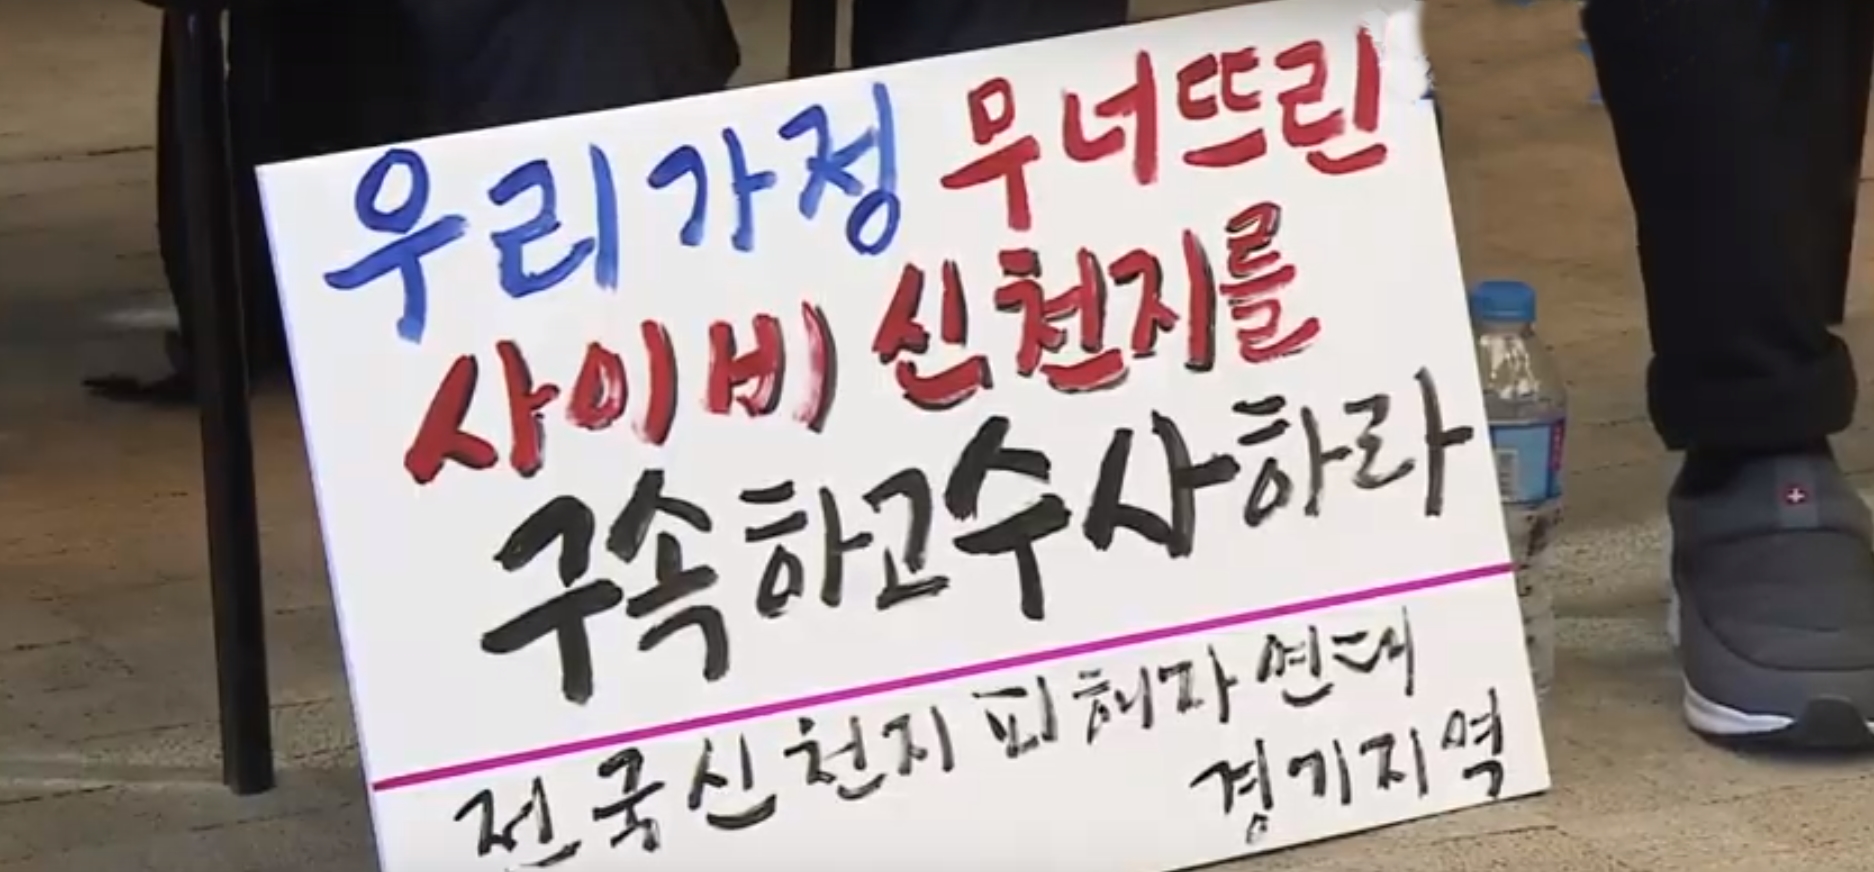 우리가정 무너뜨린
사이비 신천지를
구속하고수사하라
전국신천지피해자연대
경기지역